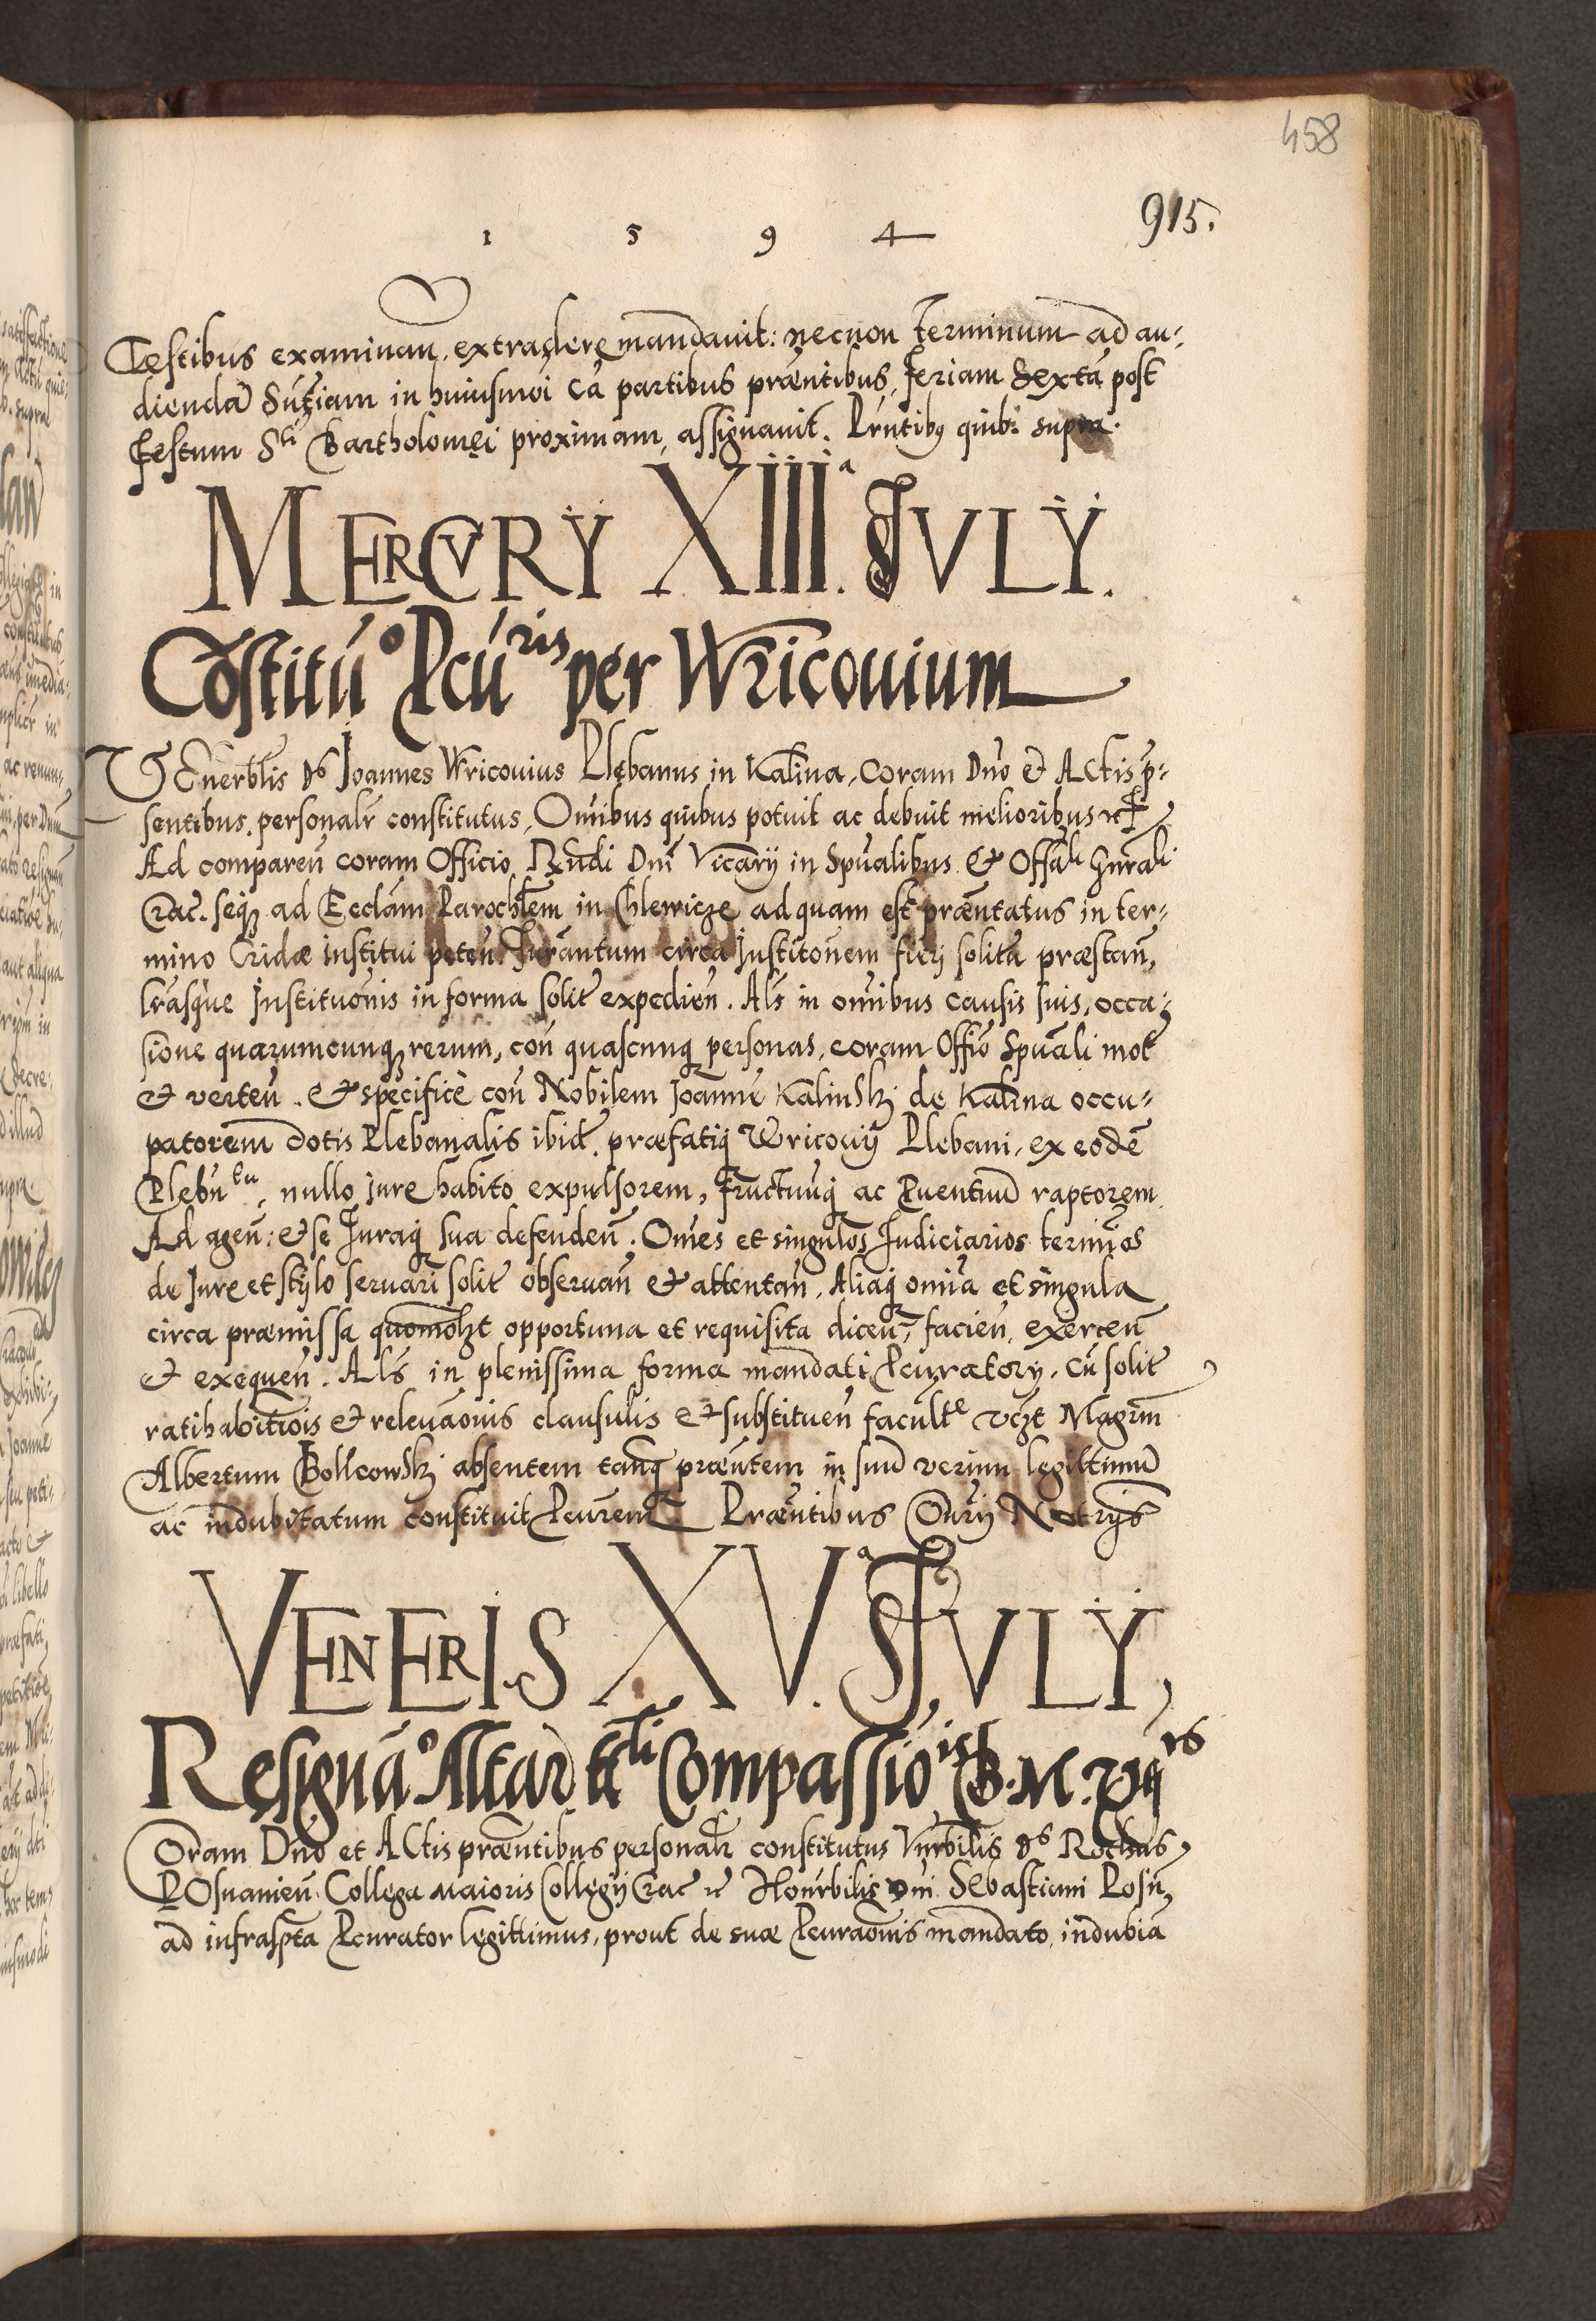 458
915.
1 5 9 4
Testibus examinan. extradere mandauit: necnon terminum ad au-
dienda Snīam in huiusmōi Cā partibus præntibus, feriam Sextā post
festum Sti Bartholomęi proximam, assignauit. Prntibȝ quib: supra.
MERCVRY XIIIa IVLY.
Cōstitúo Pcúris per Wricouium
VEnerblis ds Joannes Wricouius Plebanus in Kalina, Coram Dno et Actis p-
sentibus, personalr constitutus, Omibus quibus potuit ac debuit melioribus etc
Ad compareñ coram Officio Rndi Dni Vicarij in Spualibus et Offāli Gnrali
Crac. seqȝ ad Ecclām Parochlem in Chlewicze ad quam est præntatus in ter-
mino Cridæ institui peteñ. Jurantum circa Institonem fierj solita præstañ,
lrasque Institvonis in forma solit expedieñ. Als in omibus causis suis, occa-
sione quarumcunqȝ rerum, coñ quascunqȝ personas, coram Offio Spuali mot
et verteñ. et specificè coñ Nobilem Joanne Kalinskj de Kalina occu-
patorem dotis Plebanalis ibid. præfatiqȝ Wricouij Plebani, ex eodē
Plebntu, nullo jure habito expulsorem, fructuuqȝ ac Puentiū raptorem
Ad ageñ: et se Juraqȝ sua defendeñ. Omes et singulos Judiciarios terminos
de Jure et stylo seruari solit obseruañ et attentañ, Aliaqȝ omia et singula
circa præmissa quomolzt opportuna et requisita diceñ, facieñ, exerceñ
et exequeñ. Als in plenissima forma mandati Pcuratorij. Cū solit
ratihabitiōis et releuāonis clausulis et substitueñ facultte vȝt Magrm
Albertum Bolleowskj absentem tanqȝ præntem in suū verum legittimū
ac indubitatum constituit Pcurem. Præntibus Onrij Notrijs
VENERIS XVa IVLY,
Resignāo Altar ttli Compassiōis B. M. Vgis
Coram Dno et Actis præntibus personalr constitutus Vnrbilis ds Rochus
POsnanieñ. Collega Maioris Collegij Crac et Honrbilis Dni Sebastiani Posñ,
ad infraspta Pcurator legittimus, prout de suæ Pcuraonis mandato, indubia